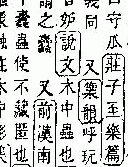 守瓜莊子至樂篇
同又集韻呼玩
妒說文木中蟲也
之蠹又前漢南
蠹蟲使不藏匿也